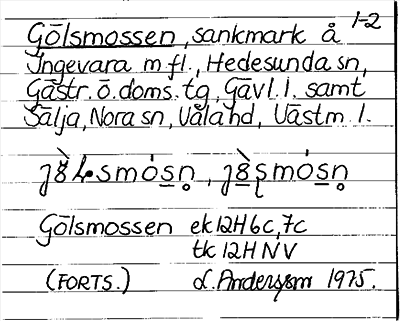 1-2
Gölsmossen, sankmark å
Ingevara m fl., Hedesunda sn,
Gästr. ö. doms. tg, Gävl. l. samt
Sälja, Nora sn, Våla hd, Västm l.
Gölsmossen ek 12H 6c, 7c
tk 12H NV
(FORTS.) 1975.